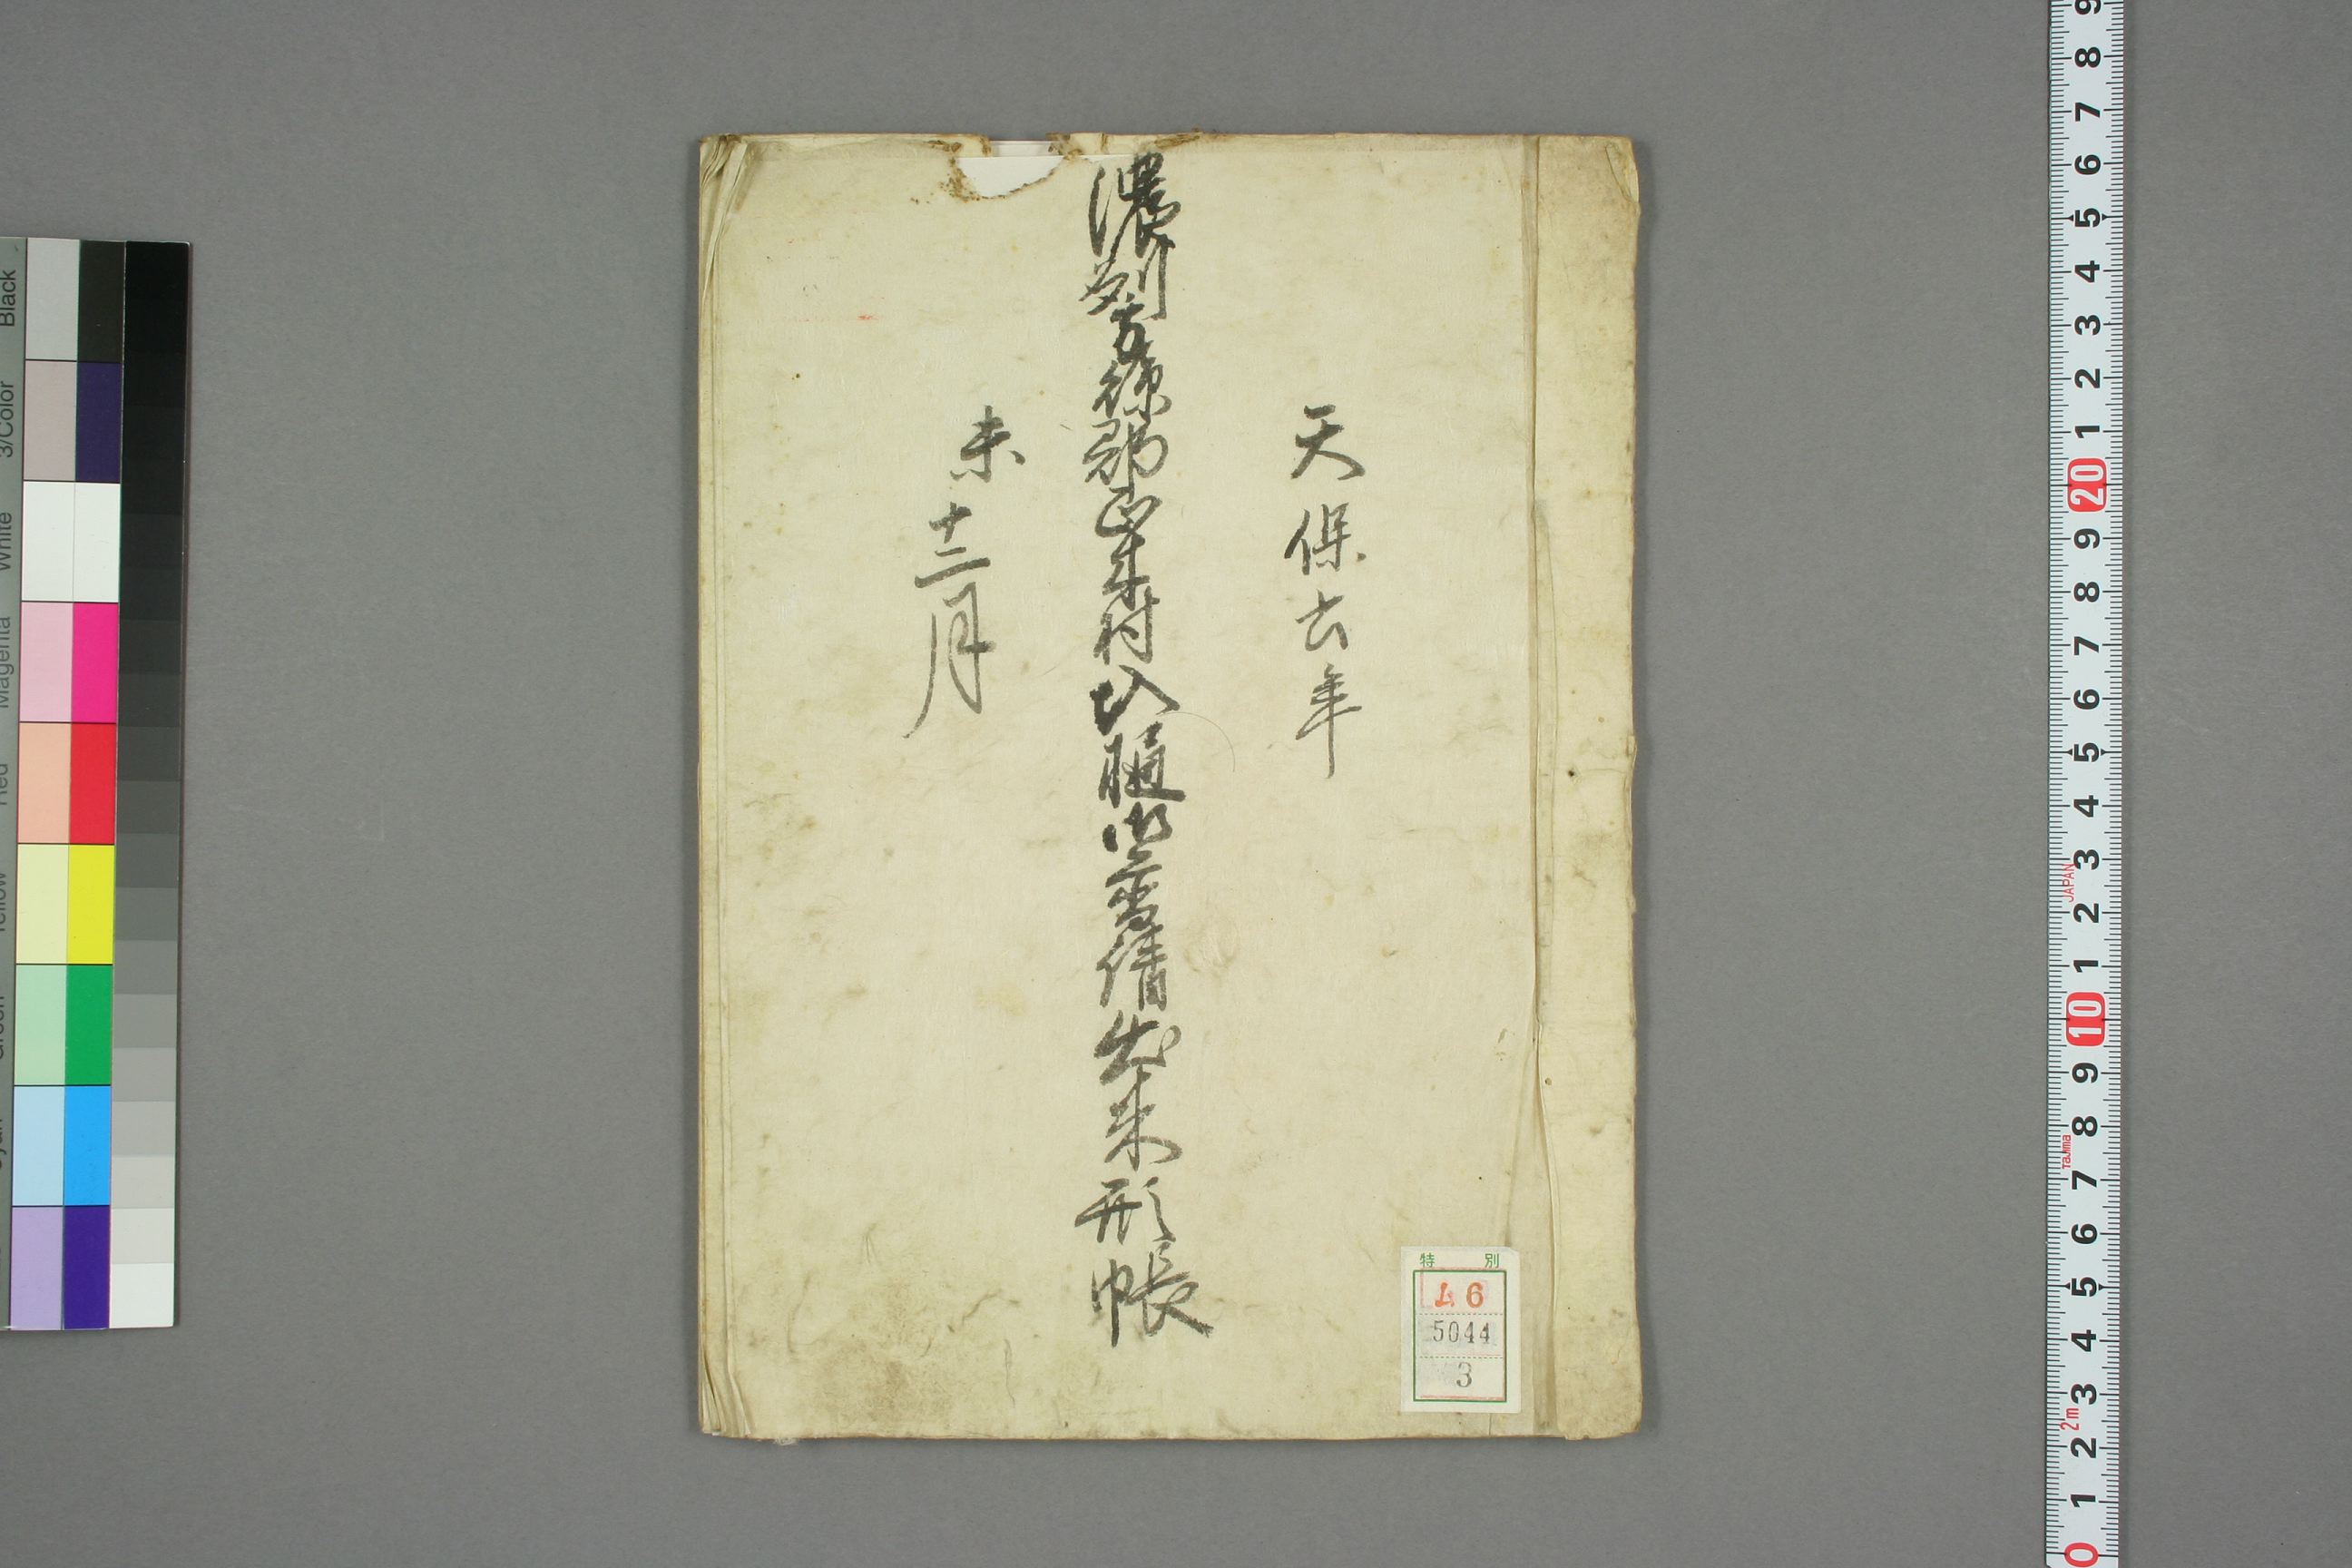 天保六年
濃州方縣郡正木村圦樋御普請出来形帳
未十二月
特別
ム6
5044
3
Black
3/Color
White
Magenta
Red
Yellow
Green
9
8
7
6
5
4
3
2
1
20
9
8
7
6
5
4
3
JAPAN
2
1
10
9
8
Tajima
7
6
5
4
3
2m
2
1
0